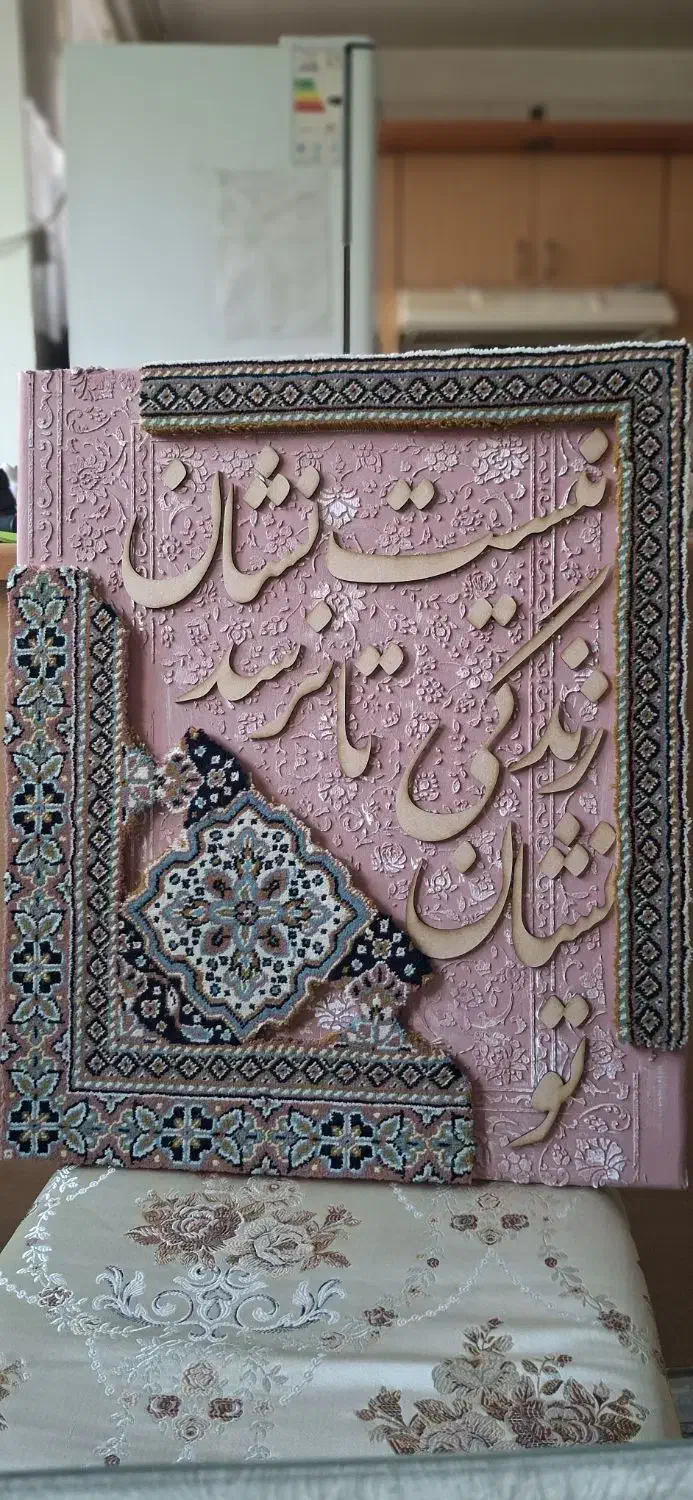 نیست نشان
زندگی تا نرسد
نشان
تو